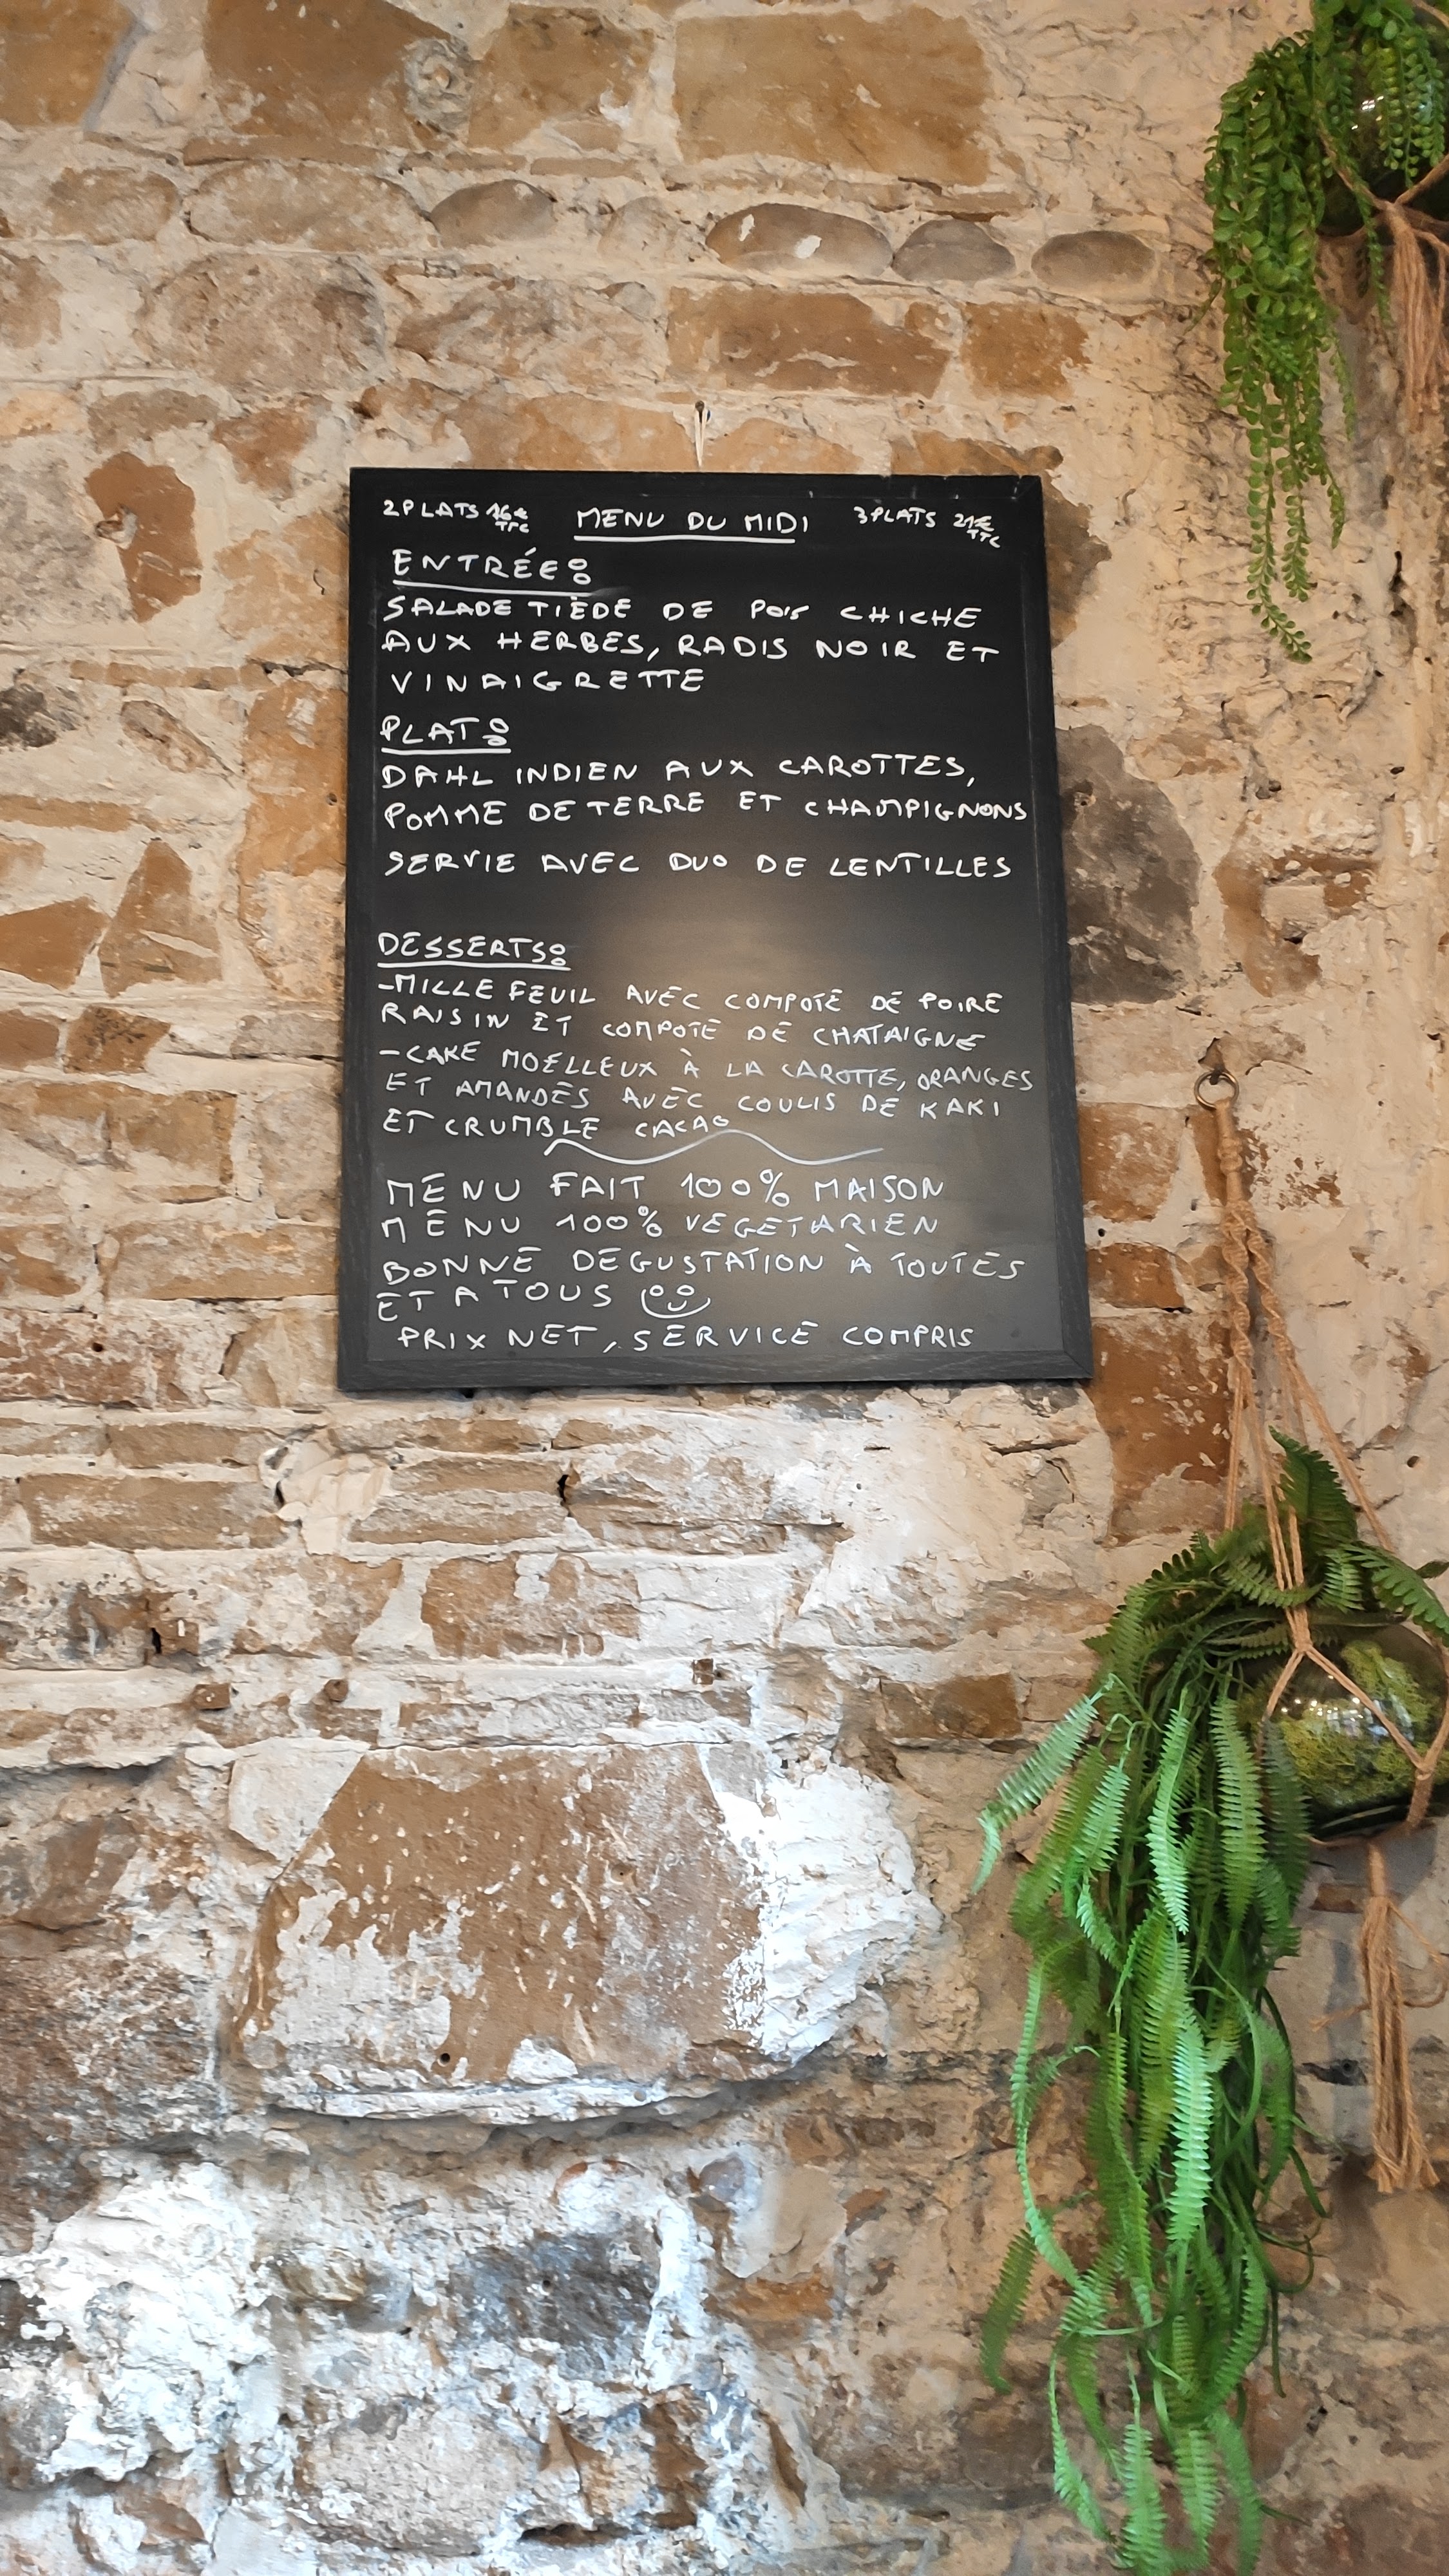 2 PLATS 16€ TTC MENU DU MIDI 3 PLATS 21€ TTC
ENTRÉE:
SALADE TIÈDE DE POIS CHICHE
AUX HERBES, RADIS NOIR ET
VINAIGRETTE
PLAT:
DAHL INDIEN AUX CAROTTES,
POMME DE TERRE ET CHAMPIGNONS
SERVIE AVEC DUO DE LENTILLES
DESSERTS:
-MILLE FEUIL AVEC COMPOTE DE POIRE
RAISIN ET COMPOTE DE CHATAIGNE
-CAKE MOELLEUX À LA CAROTTE, ORANGES
ET AMANDES AVEC COULIS DE KAKI
ET CRUMBLE CACAO
MENU FAIT 100% MAISON
MENU 100% VEGETARIEN
BONNE DEGUSTATION À TOUTES
ET A TOUS
PRIX NET, SERVICE COMPRIS